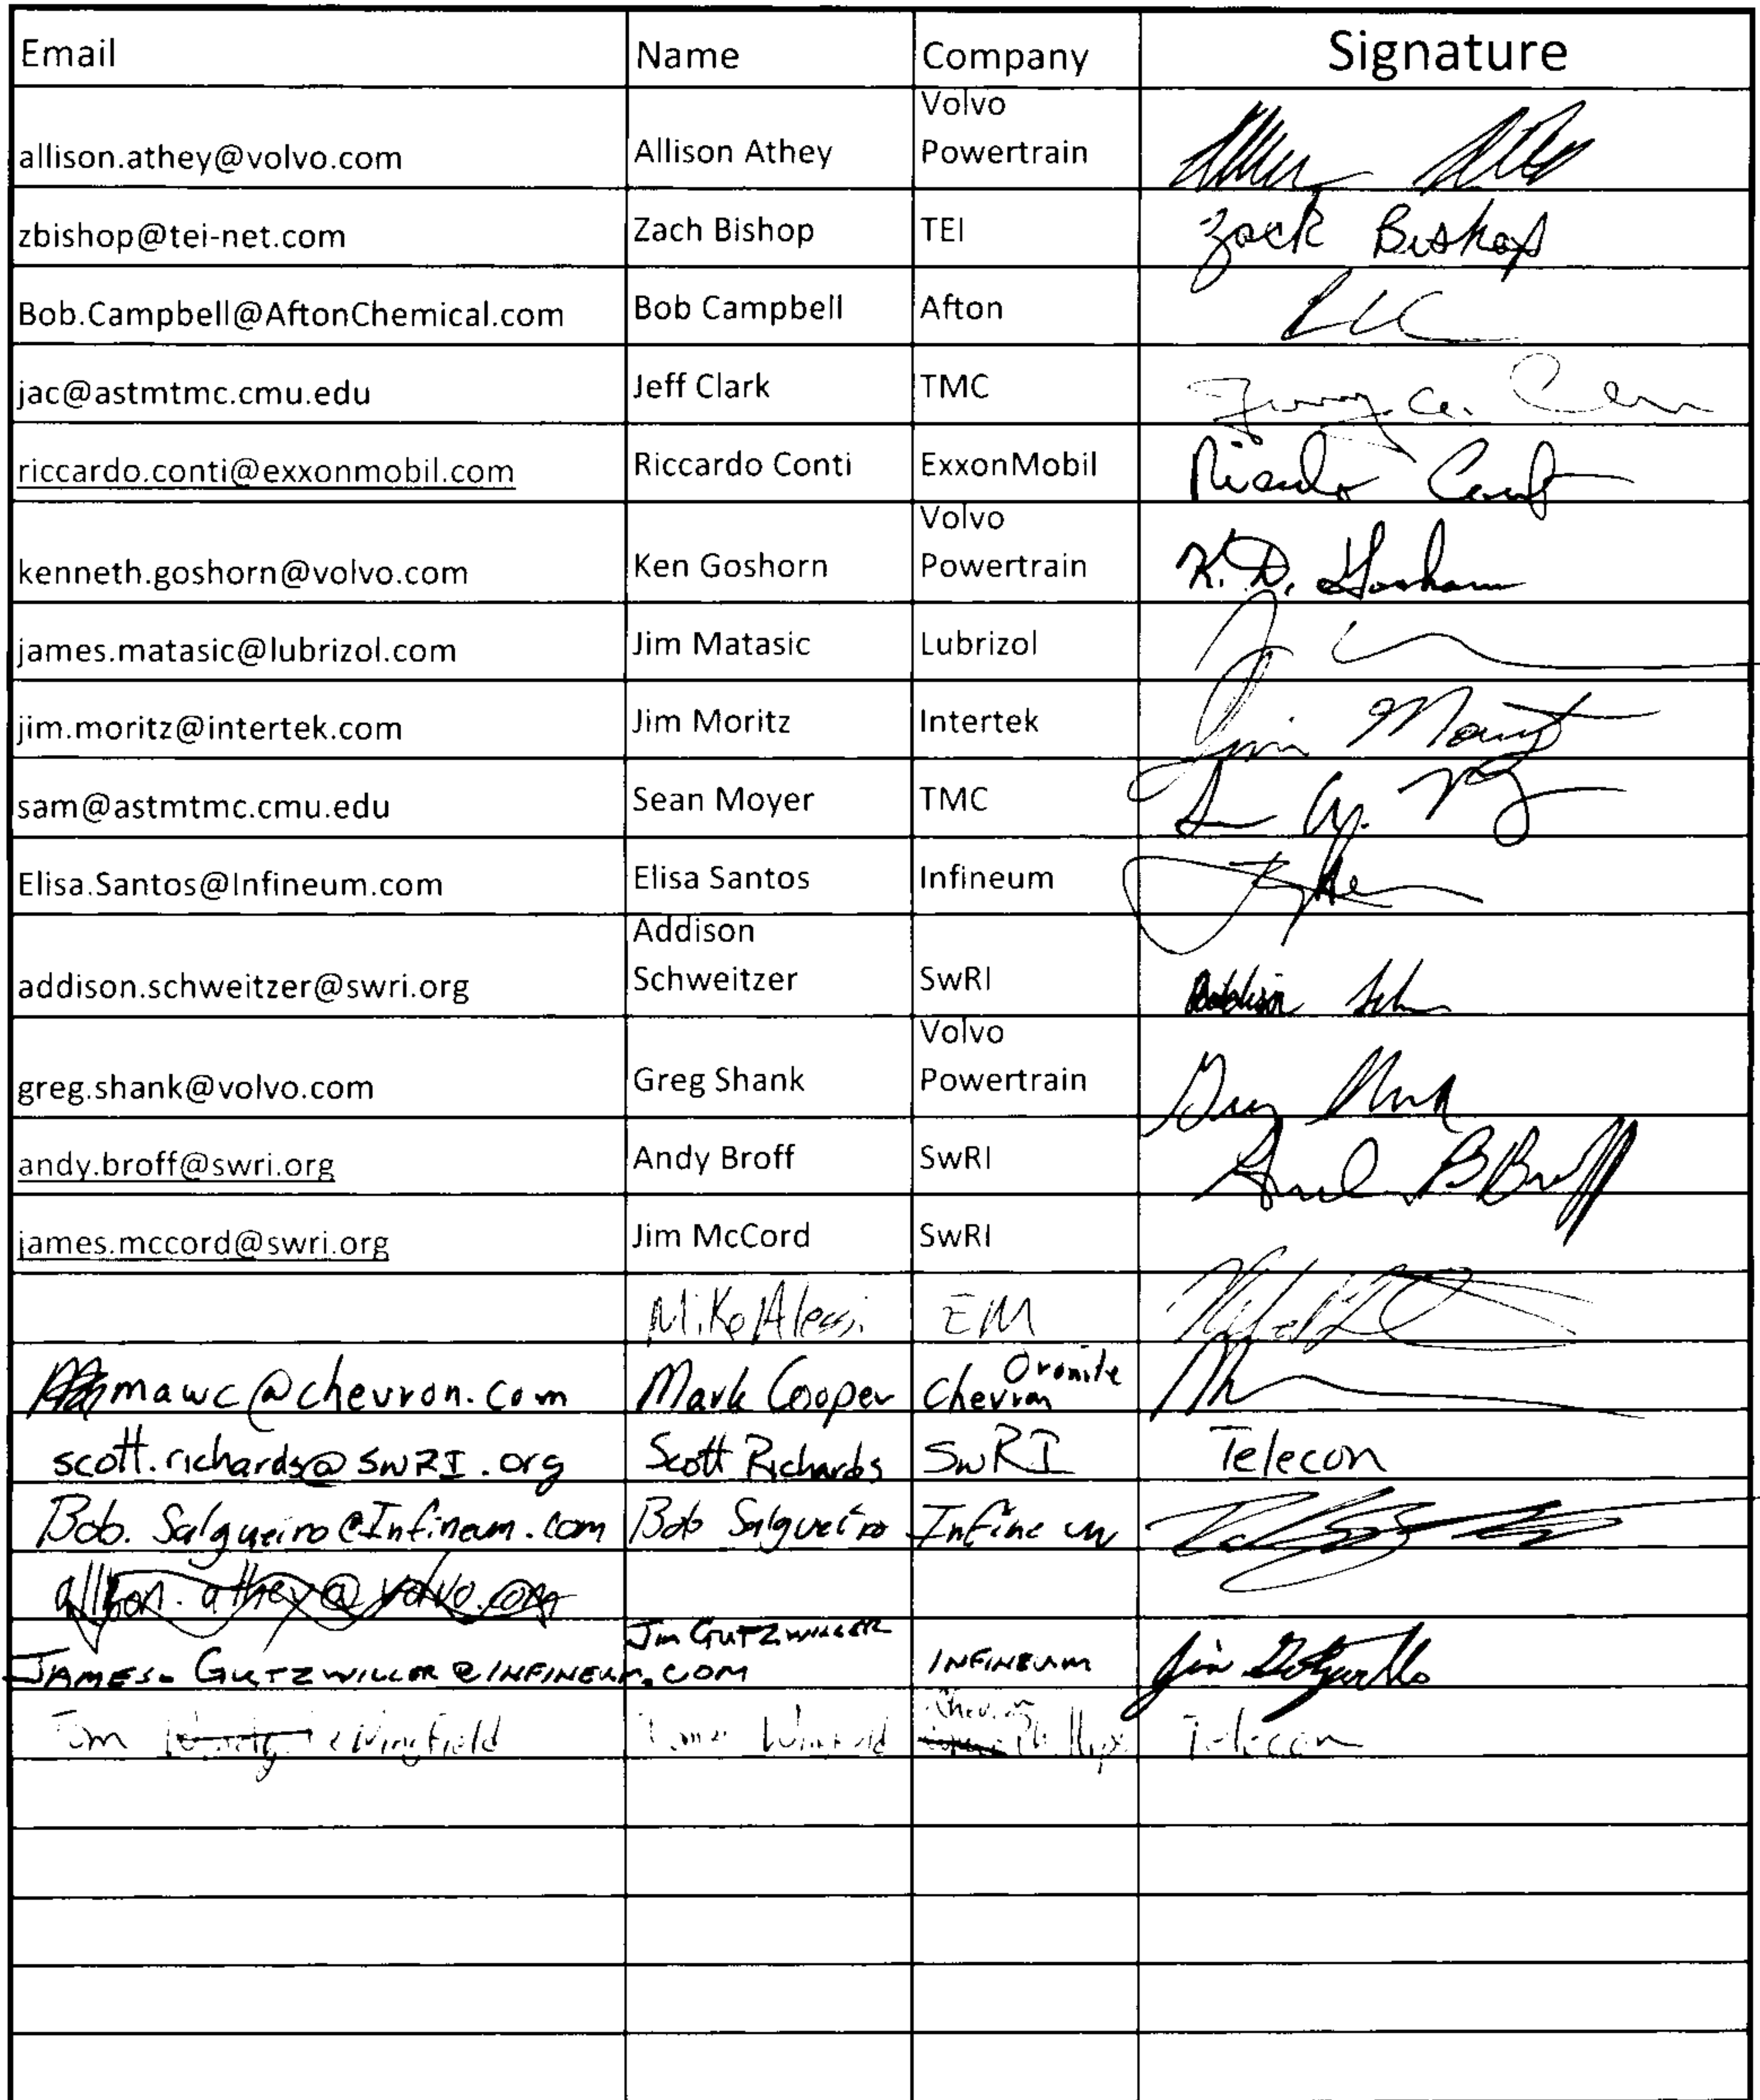 Email Name Company Signature
Volvo
allison.athey@volvo.com Allison Athey Powertrain
zbishop@tei-net.com Zach Bishop TEI Zack Bishop
Bob.Campbell@AftonChemical.com Bob Campbell Afton
jac@astmtmc.cmu.edu Jeff Clark TMC
riccardo.conti@exxonmobil.com Riccardo Conti ExxonMobil
Volvo
kenneth.goshorn@volvo.com Ken Goshorn Powertrain K.D. Goshorn
james.matasic@lubrizol.com Jim Matasic Lubrizol
jim.moritz@intertek.com Jim Moritz Intertek Jim Moritz
sam@astmtmc.cmu.edu Sean Moyer TMC
Elisa.Santos@Infineum.com Elisa Santos Infineum
Addison
addison.schweitzer@swri.org Schweitzer SwRI
Volvo
greg.shank@volvo.com Greg Shank Powertrain
andy.broff@swri.org Andy Broff SwRI
james.mccord@swri.org Jim McCord SwRI
Mike Alessi EM
Oronite
mawc@chevron.com Mark Cooper Chevron
scott.richards@SwRI.org Scott Richards SwRI Telecon
Bob.Salgueiro@Infineum.com Bob Salgueiro Infineum
allison.athey@volvo.com
Jim GUTZWILLER
JAMES.GUTZWILLER@INFINEUM.COM INFINEUM
Chevron
Tom Wingfield Phillips Telecon